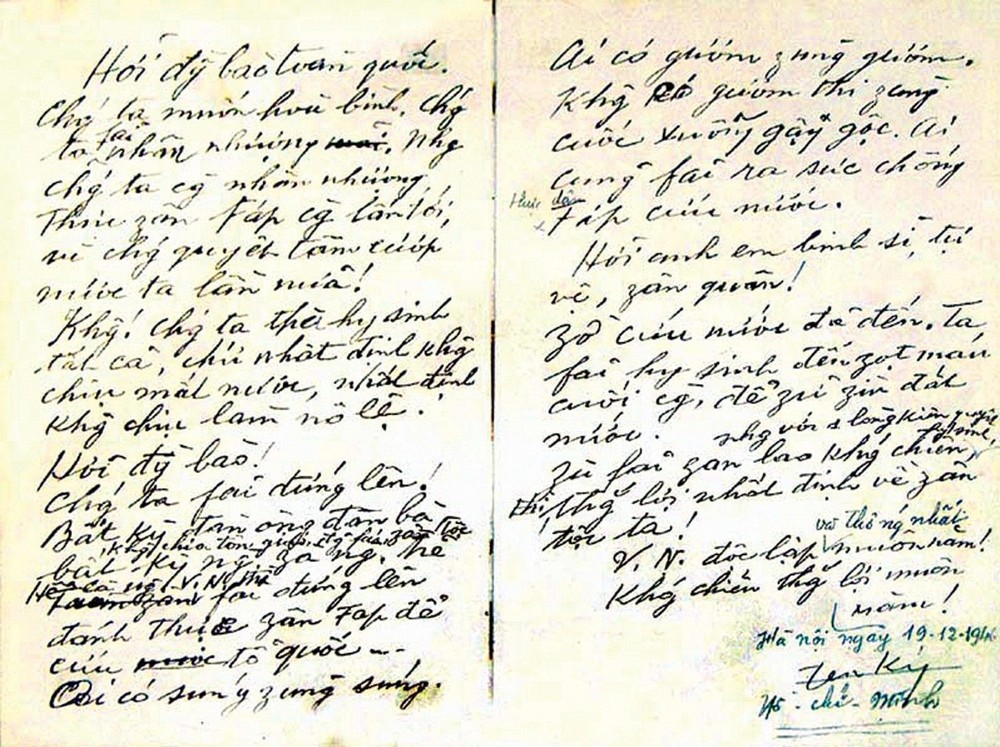 Hỡi đg̃ bào toàn quốc.
Chǵ ta muốn hoà bình. Chǵ
ta fải nhân nhượng. Nhg
chǵ ta cg̀ nhân nhượng
thực zân Fáp cg̀ lấn tới,
vì chǵ quyết tâm cướp
nước ta lần nữa!
Khg̃! Chǵ ta thà hy sinh
tất cả, chứ nhất định khg̃
chịu mất nước, nhất định
khg̃ chịu làm nô lệ.
Hỡi đg̃ bào!
Chǵ ta fải đứng lên!
Bất kỳ đàn ông đàn bà
bất kỳ ng. zà ng. trẻ
khg̃ chia tôn záo, đg̉ fái, zân tộc
Hễ là ng. V.N. thì
fải đứng lên
đánh thực zân Fáp để
cứu nước tổ quốc ---
Ai có súng zùng súng.
Ai có gươm zùng gươm.
Khg̃ có gươm thì zùng
cuốc xuổng gậy gộc. Ai
cũng fải ra sức chống
thực dân
Fáp cứu nước.
Hỡi anh em binh sĩ, tự
vệ, zân quân!
Zờ cứu nước đã đến. Ta
fải hy sinh đến zọt máu
cuối cg̀, để zữ zìn đất
nước.
Zù fải zan lao khǵ chiến,
nhg với 1 lòng kiên quyết
hy sinh,
thì thg̃ lợi nhất định về zân
tộc ta!
và thống nhất
V.N. độc lập muôn năm!
Khǵ chiến thg̃ lợi muôn
năm!
Hà nội ngày 19-12-1946
Hồ - chí - Minh